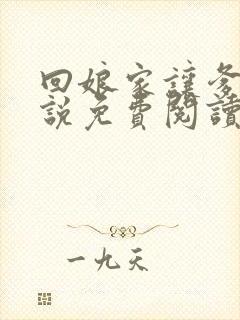 回娘家讓爹
說免費閱讀
一九天